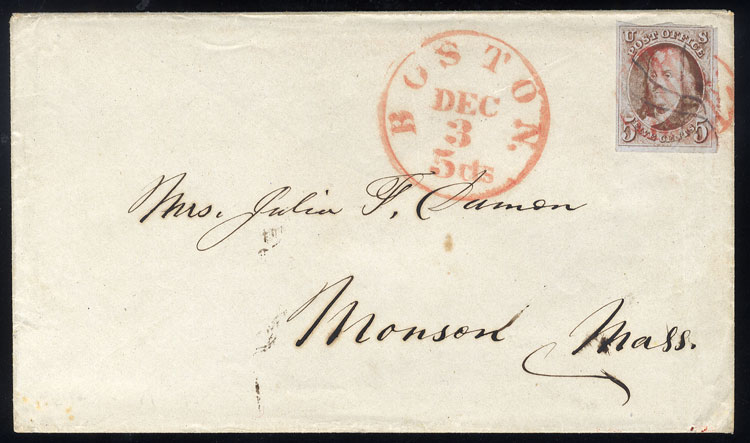 BOSTON.
DEC
3
5 cts
U S
POST OFFICE
FIVE CENTS
5 5
Mrs. Julia F. Damon
Monson Mass.